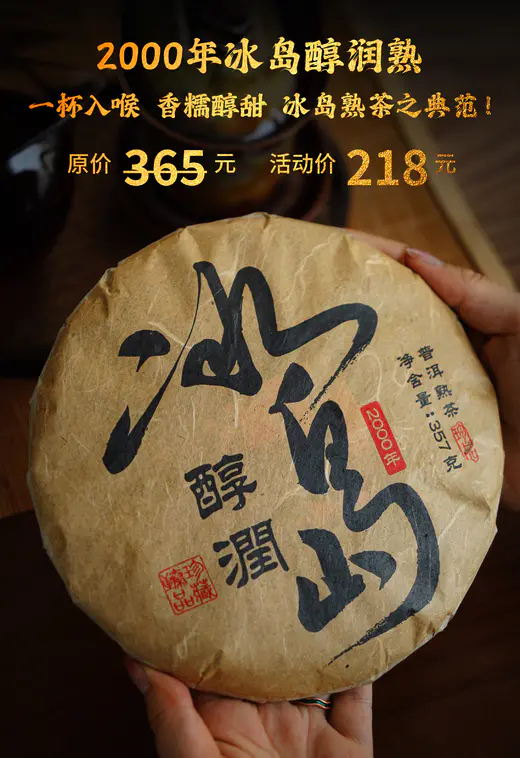 2000年冰岛醇润熟
一杯入喉 香糯醇甜 冰岛熟茶之典范!
原价 365 元 活动价 218 元
冰岛
2000年
醇潤
普洱熟茶
净含量:357克
珍藏